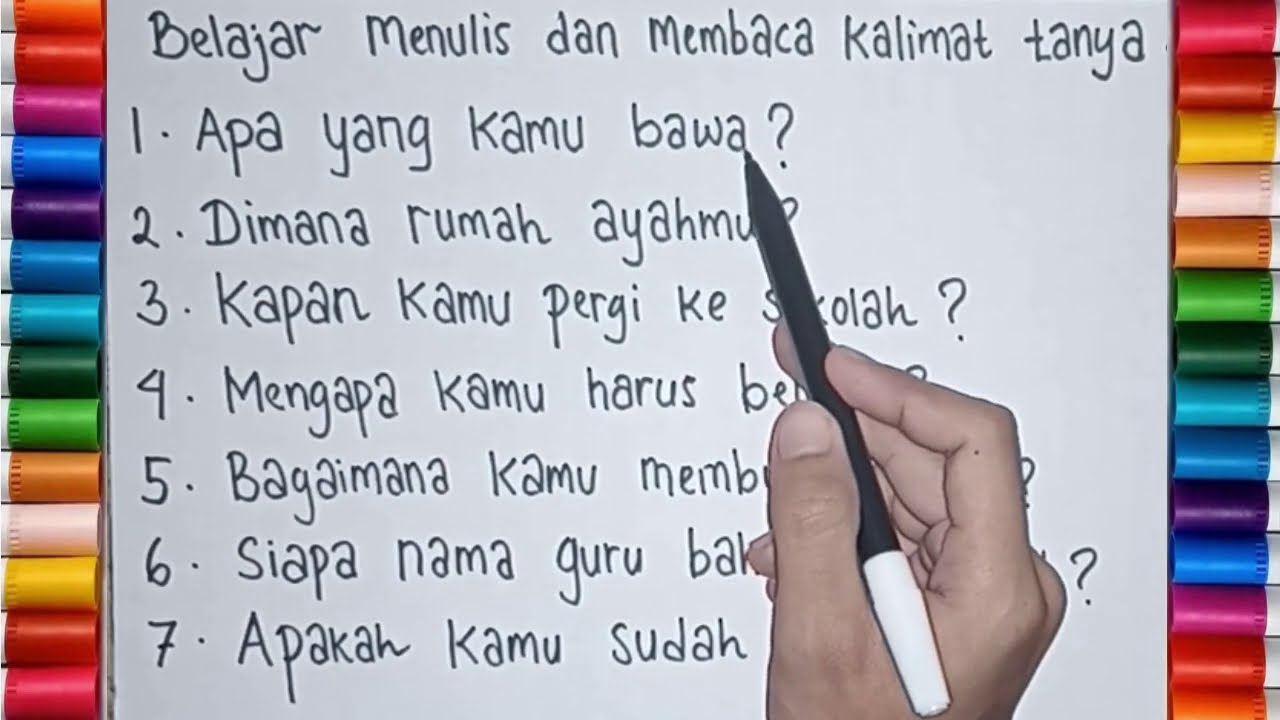 Belajar Menulis dan Membaca Kalimat tanya.
1. Apa yang kamu bawa?
2. Dimana rumah ayahmu?
3. Kapan kamu pergi ke sekolah?
4. Mengapa kamu harus ?
5. Bagaimana kamu ?
6. Siapa nama guru ?
7. Apakah kamu sudah